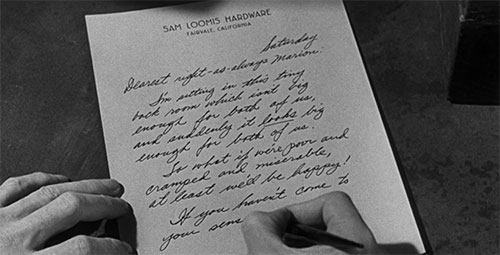 SAM LOOMIS HARDWARE
FAIRVALE, CALIFORNIA
Saturday
Dearest right-as-always Marion:
I'm sitting in this tiny
back room which isn't big
enough for both of us,
and suddenly it looks big
enough for both of us.
So what if we're poor and
cramped and miserable,
at least we'll be happy!
If you haven't come to
your sens